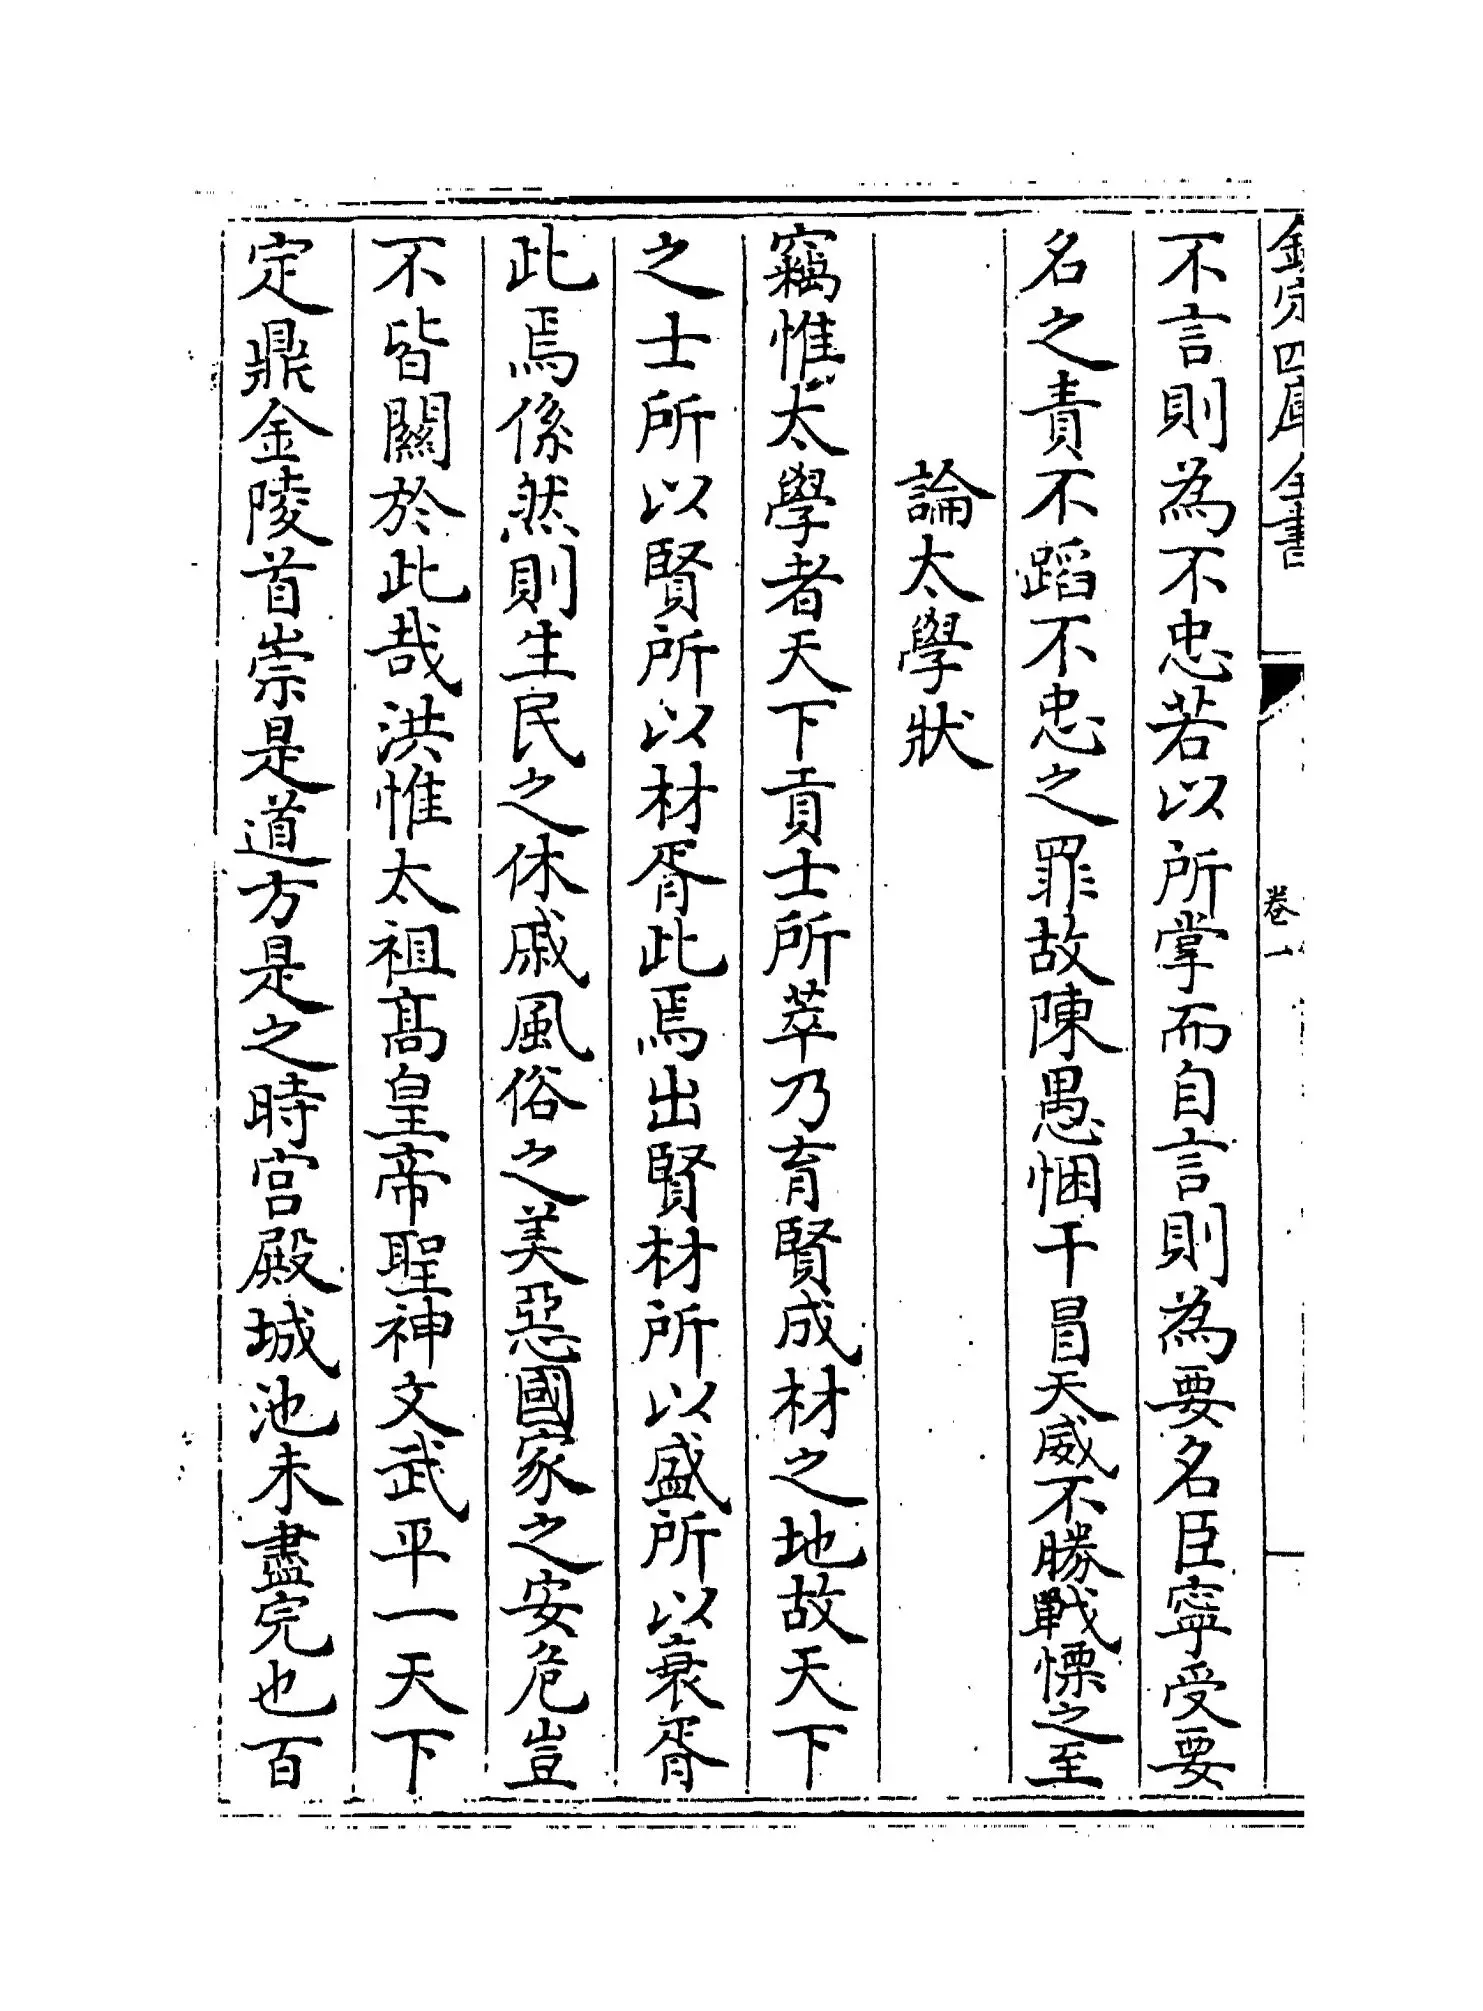 欽定四庫全書
卷一
不言則為不忠若以所掌而自言則為要名臣寧受要
名之責不蹈不忠之罪故陳愚悃干冒天威不勝戰慄之至
論太學狀
竊惟太學者天下貢士所萃乃育賢成材之地故天下
之士所以賢所以材胥此焉出賢材所以盛所以衰胥
此焉係然則生民之休戚風俗之美惡國家之安危豈
不皆關於此哉洪惟太祖髙皇帝聖神文武平一天下
定鼎金陵首崇是道方是之時宫殿城池未盡完也百